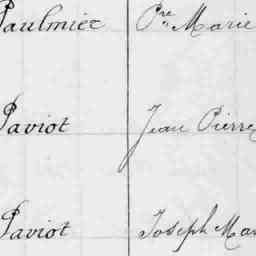 Paulmier Pre Marie
Paviot Jean Pierre
Paviot Joseph Mar